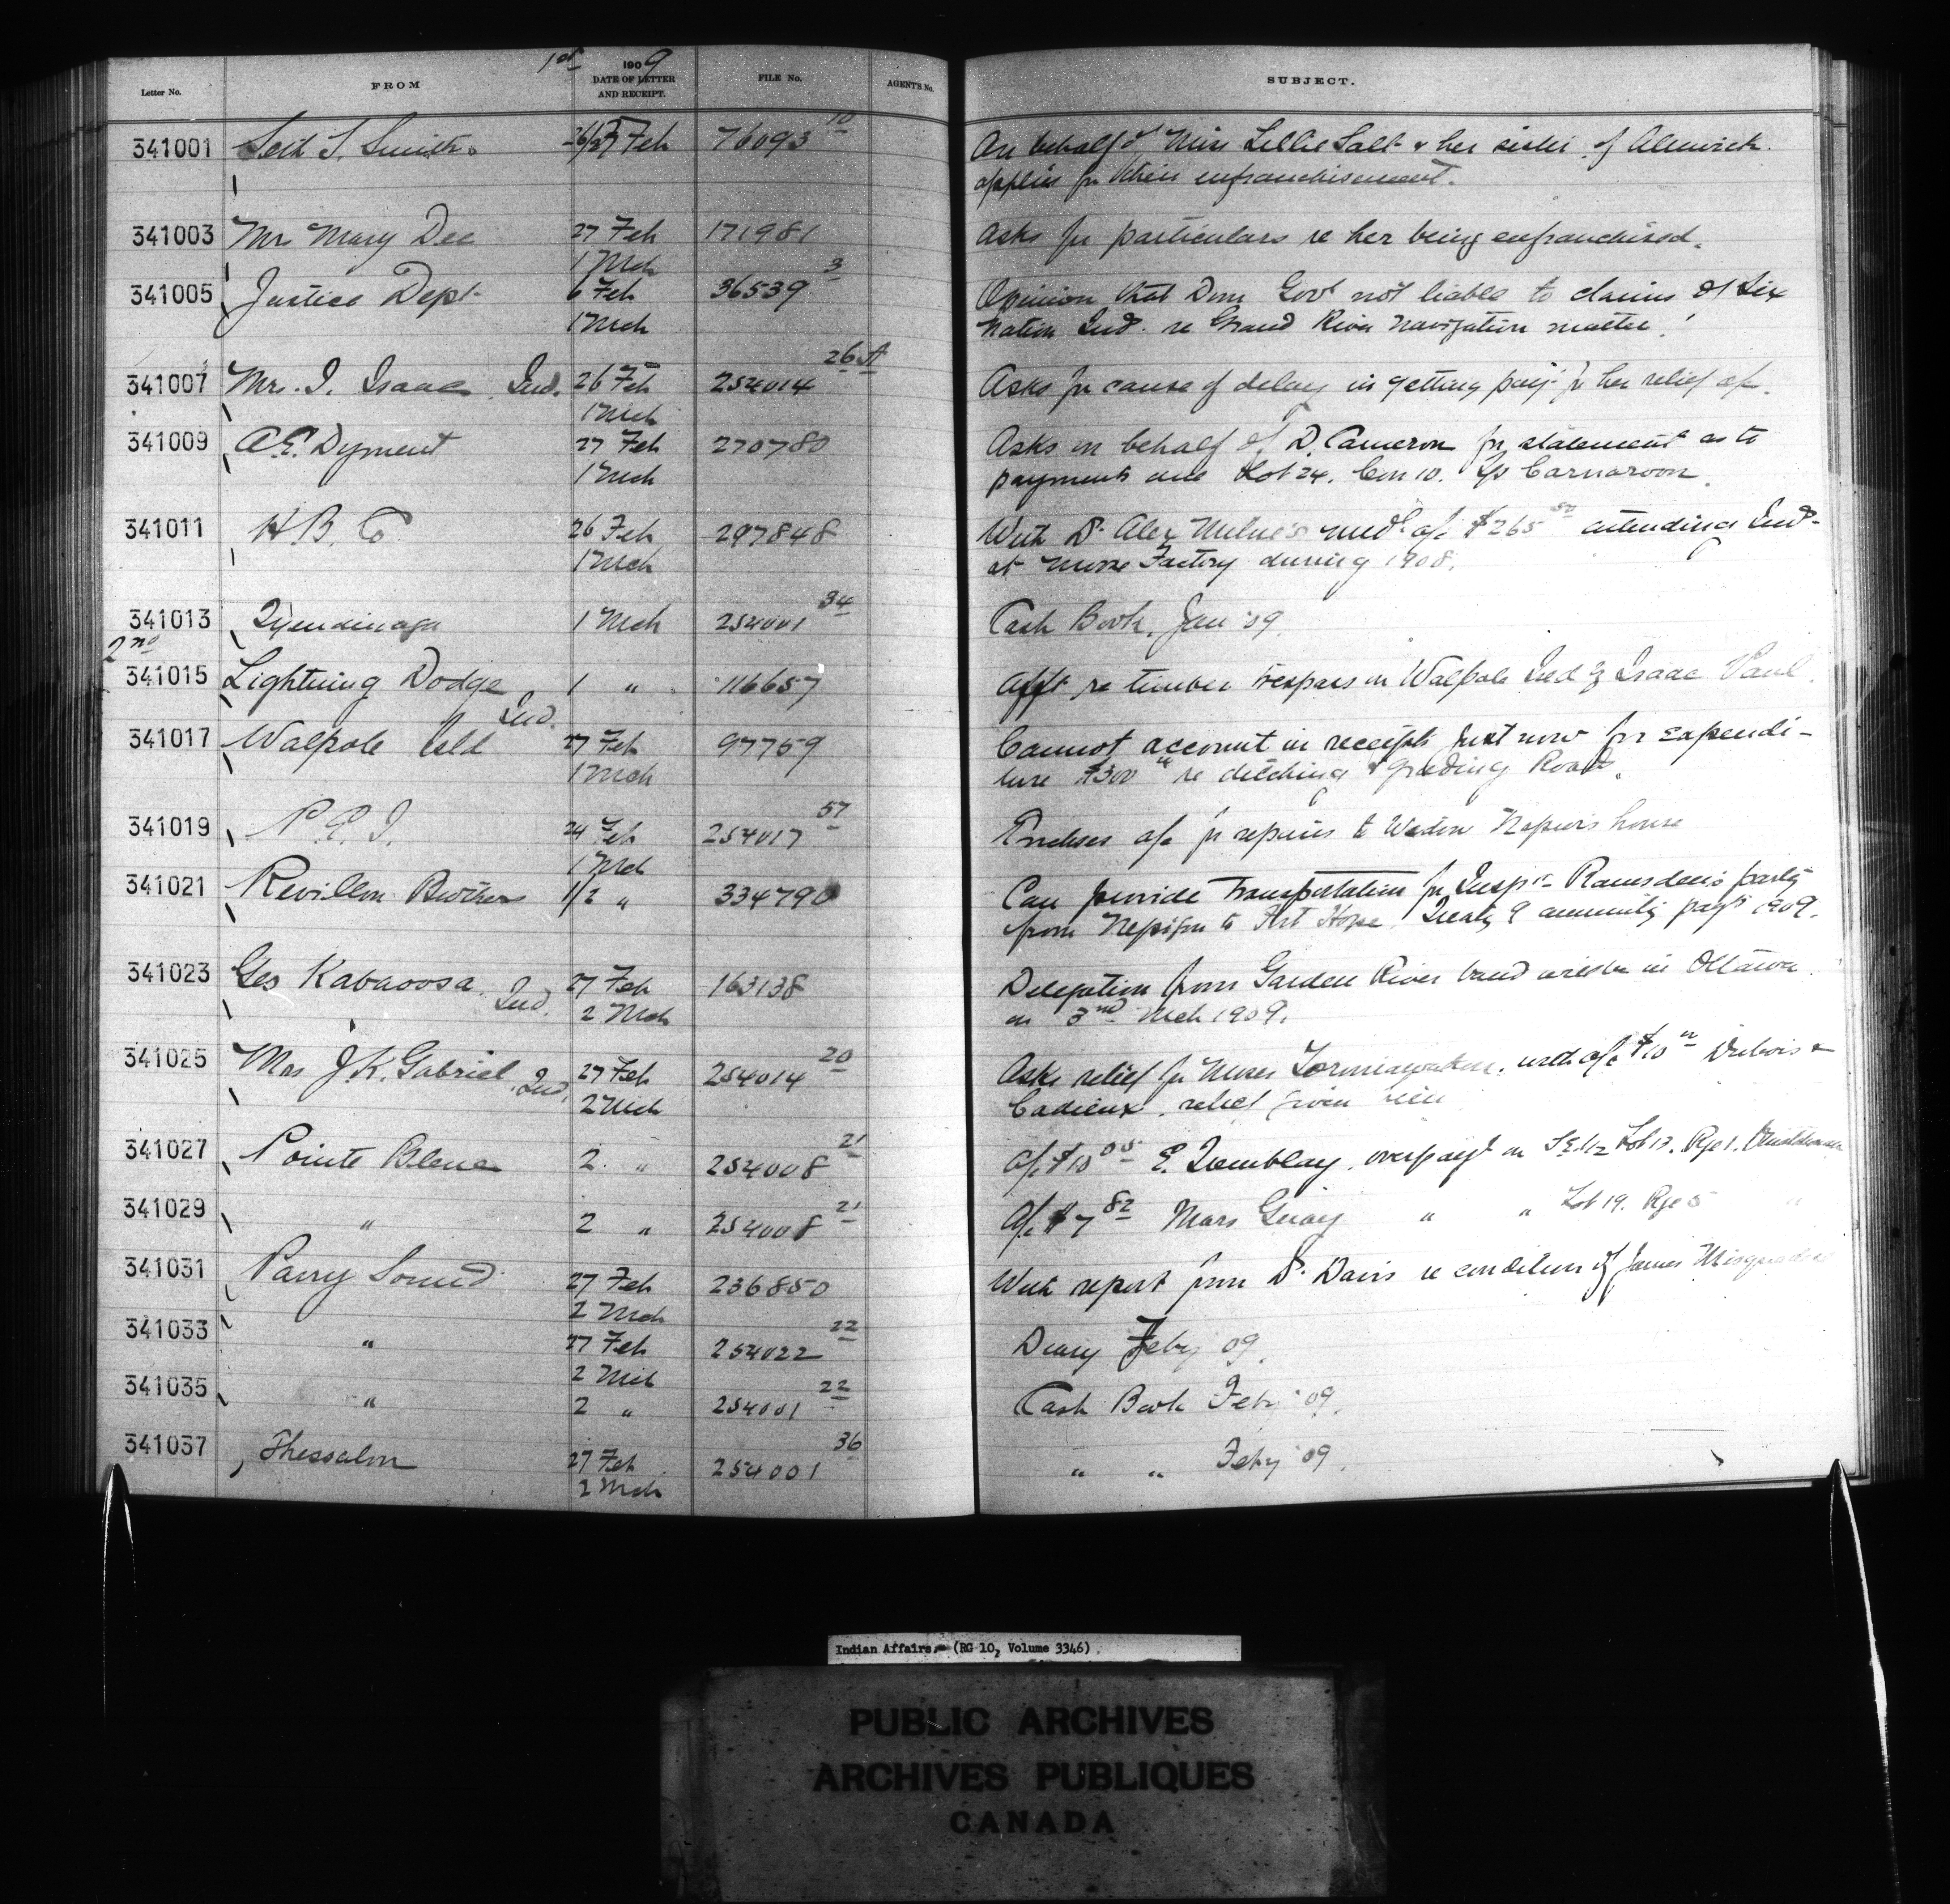 1st 1909
Letter No. FROM DATE OF LETTER AND RECEIPT. FILE No. AGENTS No. SUBJECT.
341001 Seth S. Smith 26/27 Feb 76093 10 On behalf of Miss Lillie Salt & her sister of Alnwick
applies for their enfranchisement.
341003 Mr Mary Dee 27 Feb 171981 Asks for particulars re her being enfranchised.
1 Mch
341005 Justice Dept 6 Feb 36539 3 Opinion that Dom Govt not liable to claims of Six
1 Mch Nation Inds. re Grand River navigation matter.
341007 Mrs. I. Isaac Ind. 26 Feb 254014 26 A Asks for cause of delay in getting payt for her relief a/c.
1 Mch
341009 A.E. Dyment 27 Feb 270780 Asks on behalf of D. Cameron for statement as to
1 Mch payments due Lot 24. Con 10. Tp Carnarvon.
341011 H.B. Co 26 Feb 297848 With Dr. Alex Milne's med. a/c $265 50 attending Inds.
1 Mch at Moose Factory during 1908.
341013 Tyendinaga 1 Mch 254001 34 Cash Book, Jan '09
2nd
341015 Lightning Dodge 1 " 116657 Afft re timber trespass on Walpole Isld by Isaac Paul.
Ind.
341017 Walpole Isld 27 Feb 97759 Cannot account in receipts just now for expendi-
1 Mch ture $300 re ditching & grading Roads.
341019 P.E.I. 24 Feb 254017 57 Encloses a/c for repairs to Widow Napier's house
1 Mch
341021 Revillon Brothers 1/2 " 334790 Can provide Transportation for Inspr. Ramsden's party
from Nepigon to Fort Hope. Treaty 9 annuity payts 1909.
341023 Geo Kabaoosa. Ind. 27 Feb 163138 Delegation from Garden River band will be in Ottawa
2 Mch on 3rd Mch 1909.
341025 Mrs J.K. Gabriel. Ind. 27 Feb 254014 20 Asks relief for Moses with a/c $10 Dubois &
2 Mch Cadieux, relief given
341027 Pointe Bleue 2. " 254008 21 A/c $10 05 E. Tremblay, overpayt on S.E. 1/2 Lot 17. Rge 1.
341029 " 2 " 254008 21 A/c $7 82 Mars Guay " " Lot 19. Rge 5 "
341031 Parry Sound 27 Feb 236850 With report from Dr. Davis re condition of James
2 Mch
341033 " 27 Feb 254022 22 Diary Feby 09.
2 Mch
341035 " 2 " 254001 22 Cash Book Feby '09.
341037 Thessalon 27 Feb 254001 36 " " Feby '09.
2 Mch
Indian Affairs. (RG 10, Volume 3346)
PUBLIC ARCHIVES
ARCHIVES PUBLIQUES
CANADA